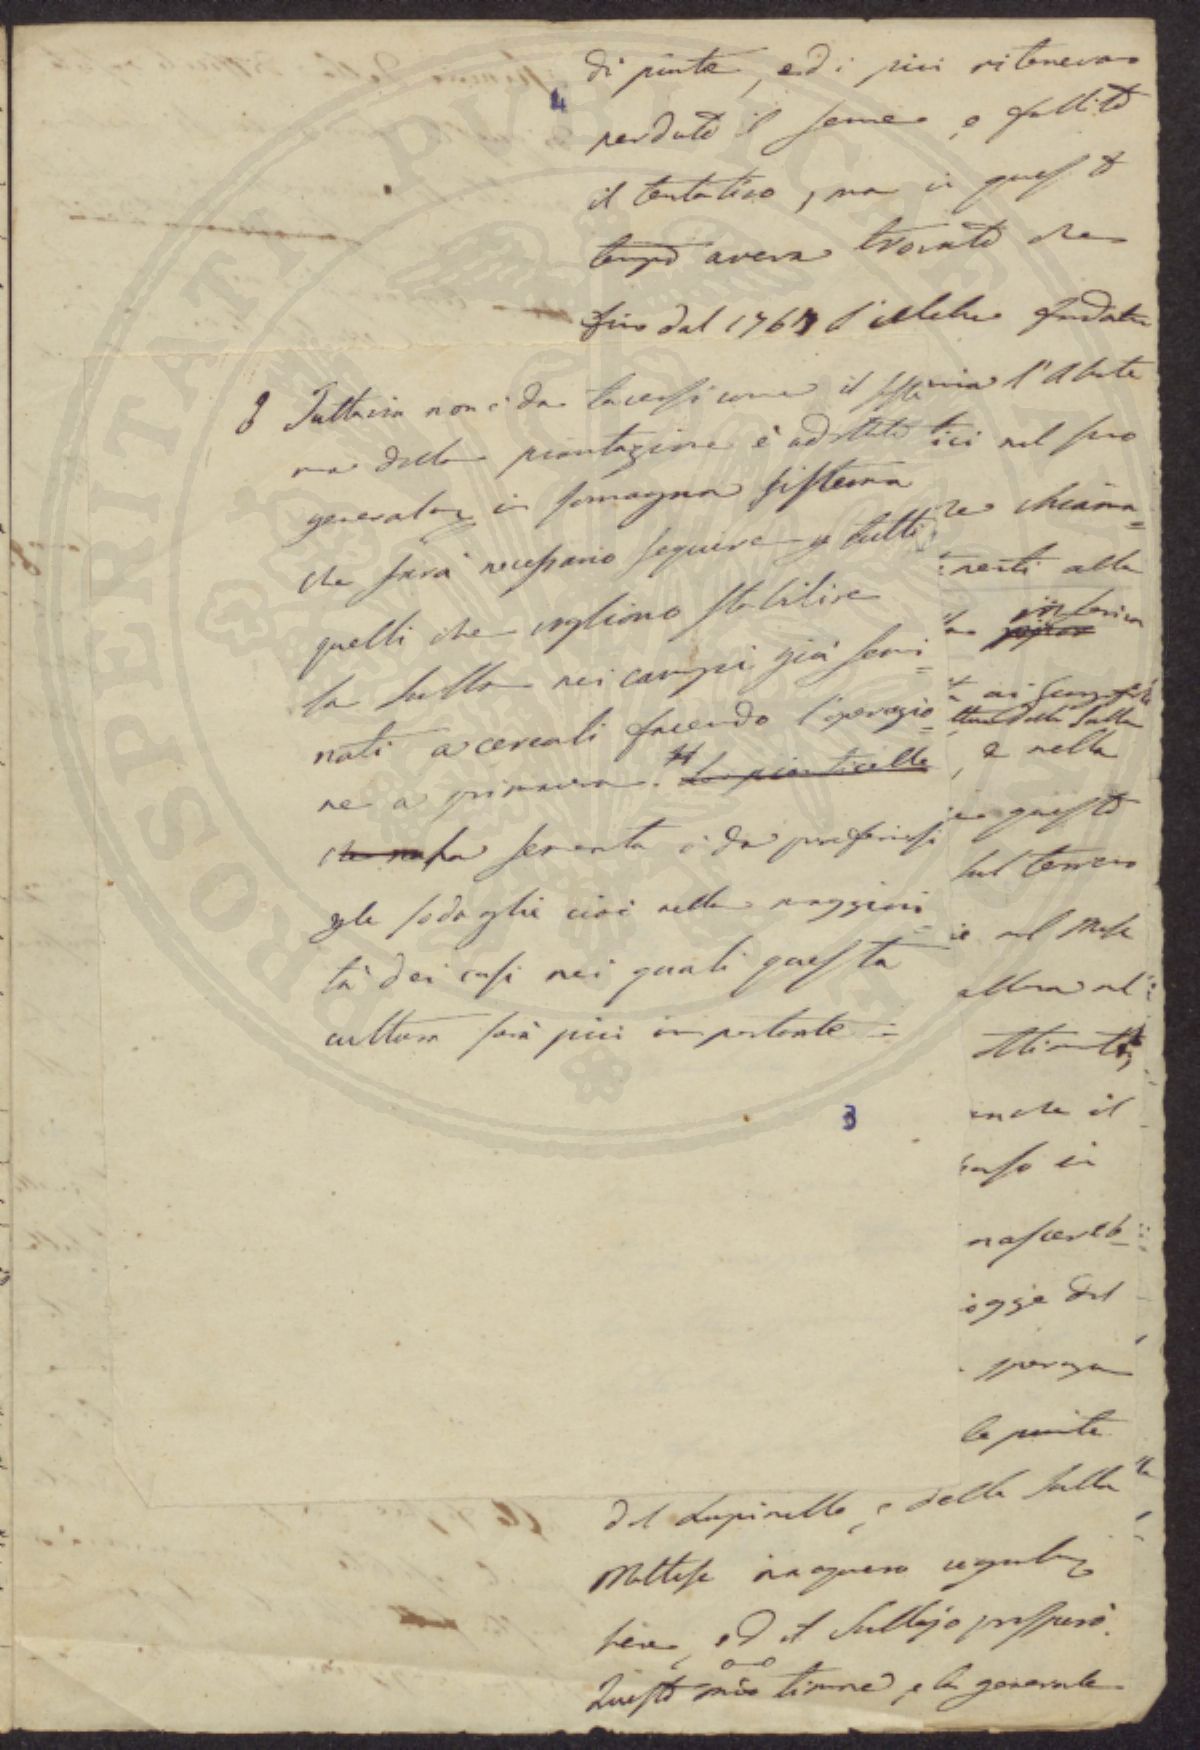 di piante, ed i più ritenevano
4
perduto il seme, e fallito
il tentativo, ma in questo
tempo aveva trovato che
fino dal 1767 l'celebre fondatore
8 Tuttavia non è da tacersi come il siste
ma della piantazione è adottato
generalm in Romagna sistema
che sarà necessario seguire p tutti
quelli che vogliono stabilire
la Sulla nei campi già semi=
nati a cereali facendo l'operazio=
ne a primavera. # La pianticella
che nela sementa è da preferirsi
p le sodaglie cioè nella maggiori=
tà dei casi nei quali questa
cultura sarà più importante =
3
l'Abate
tici nel suo
re chiama=
nenti alla
inferior
della Sulla
, e nella
questo
sul terreno
nel Mese
allora nel
anche il
in
nascereb=
oggie del
speranza
le piante
del Lupinello, e della Sulla
Maltese nacquero ugualm
bene, ed il Sullajo prosperò.
Questo mio timore, e la generale
PVBLICAE
PROSPERITATI